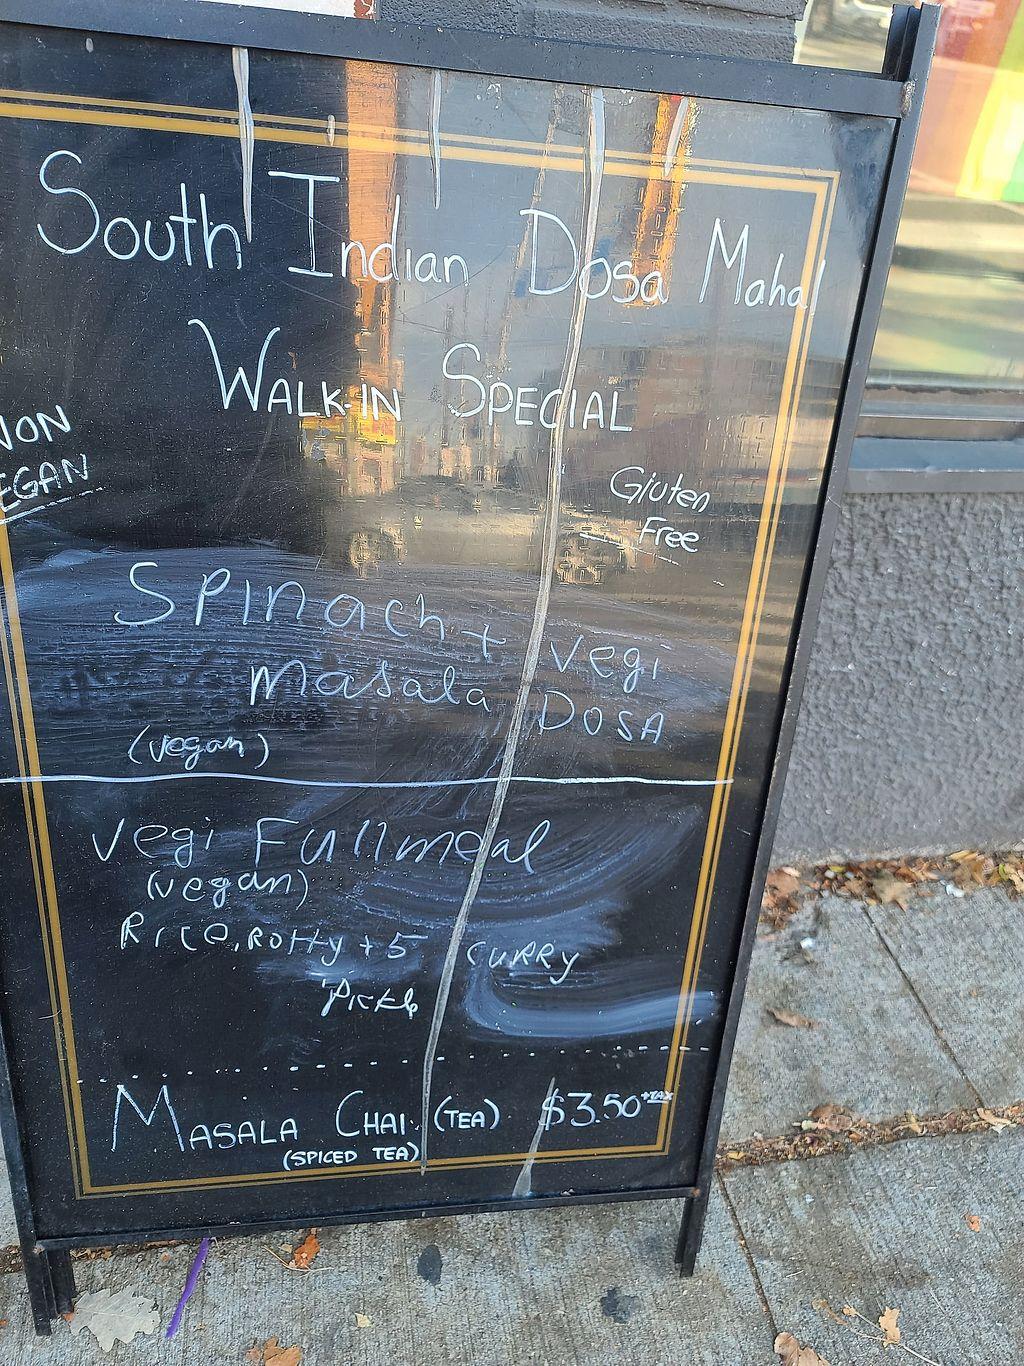 South Indian Dosa Mahal
WALK-IN SPECIAL
NON
VEGAN
Gluten
Free
Spinach + vegi
masala DOSA
(vegan)
vegi Fullmeal
(vegan)
Rice, Rotty + 5 CURRY
Pickle
MASALA CHAI (TEA) $3.50 +TAX
(SPICED TEA)